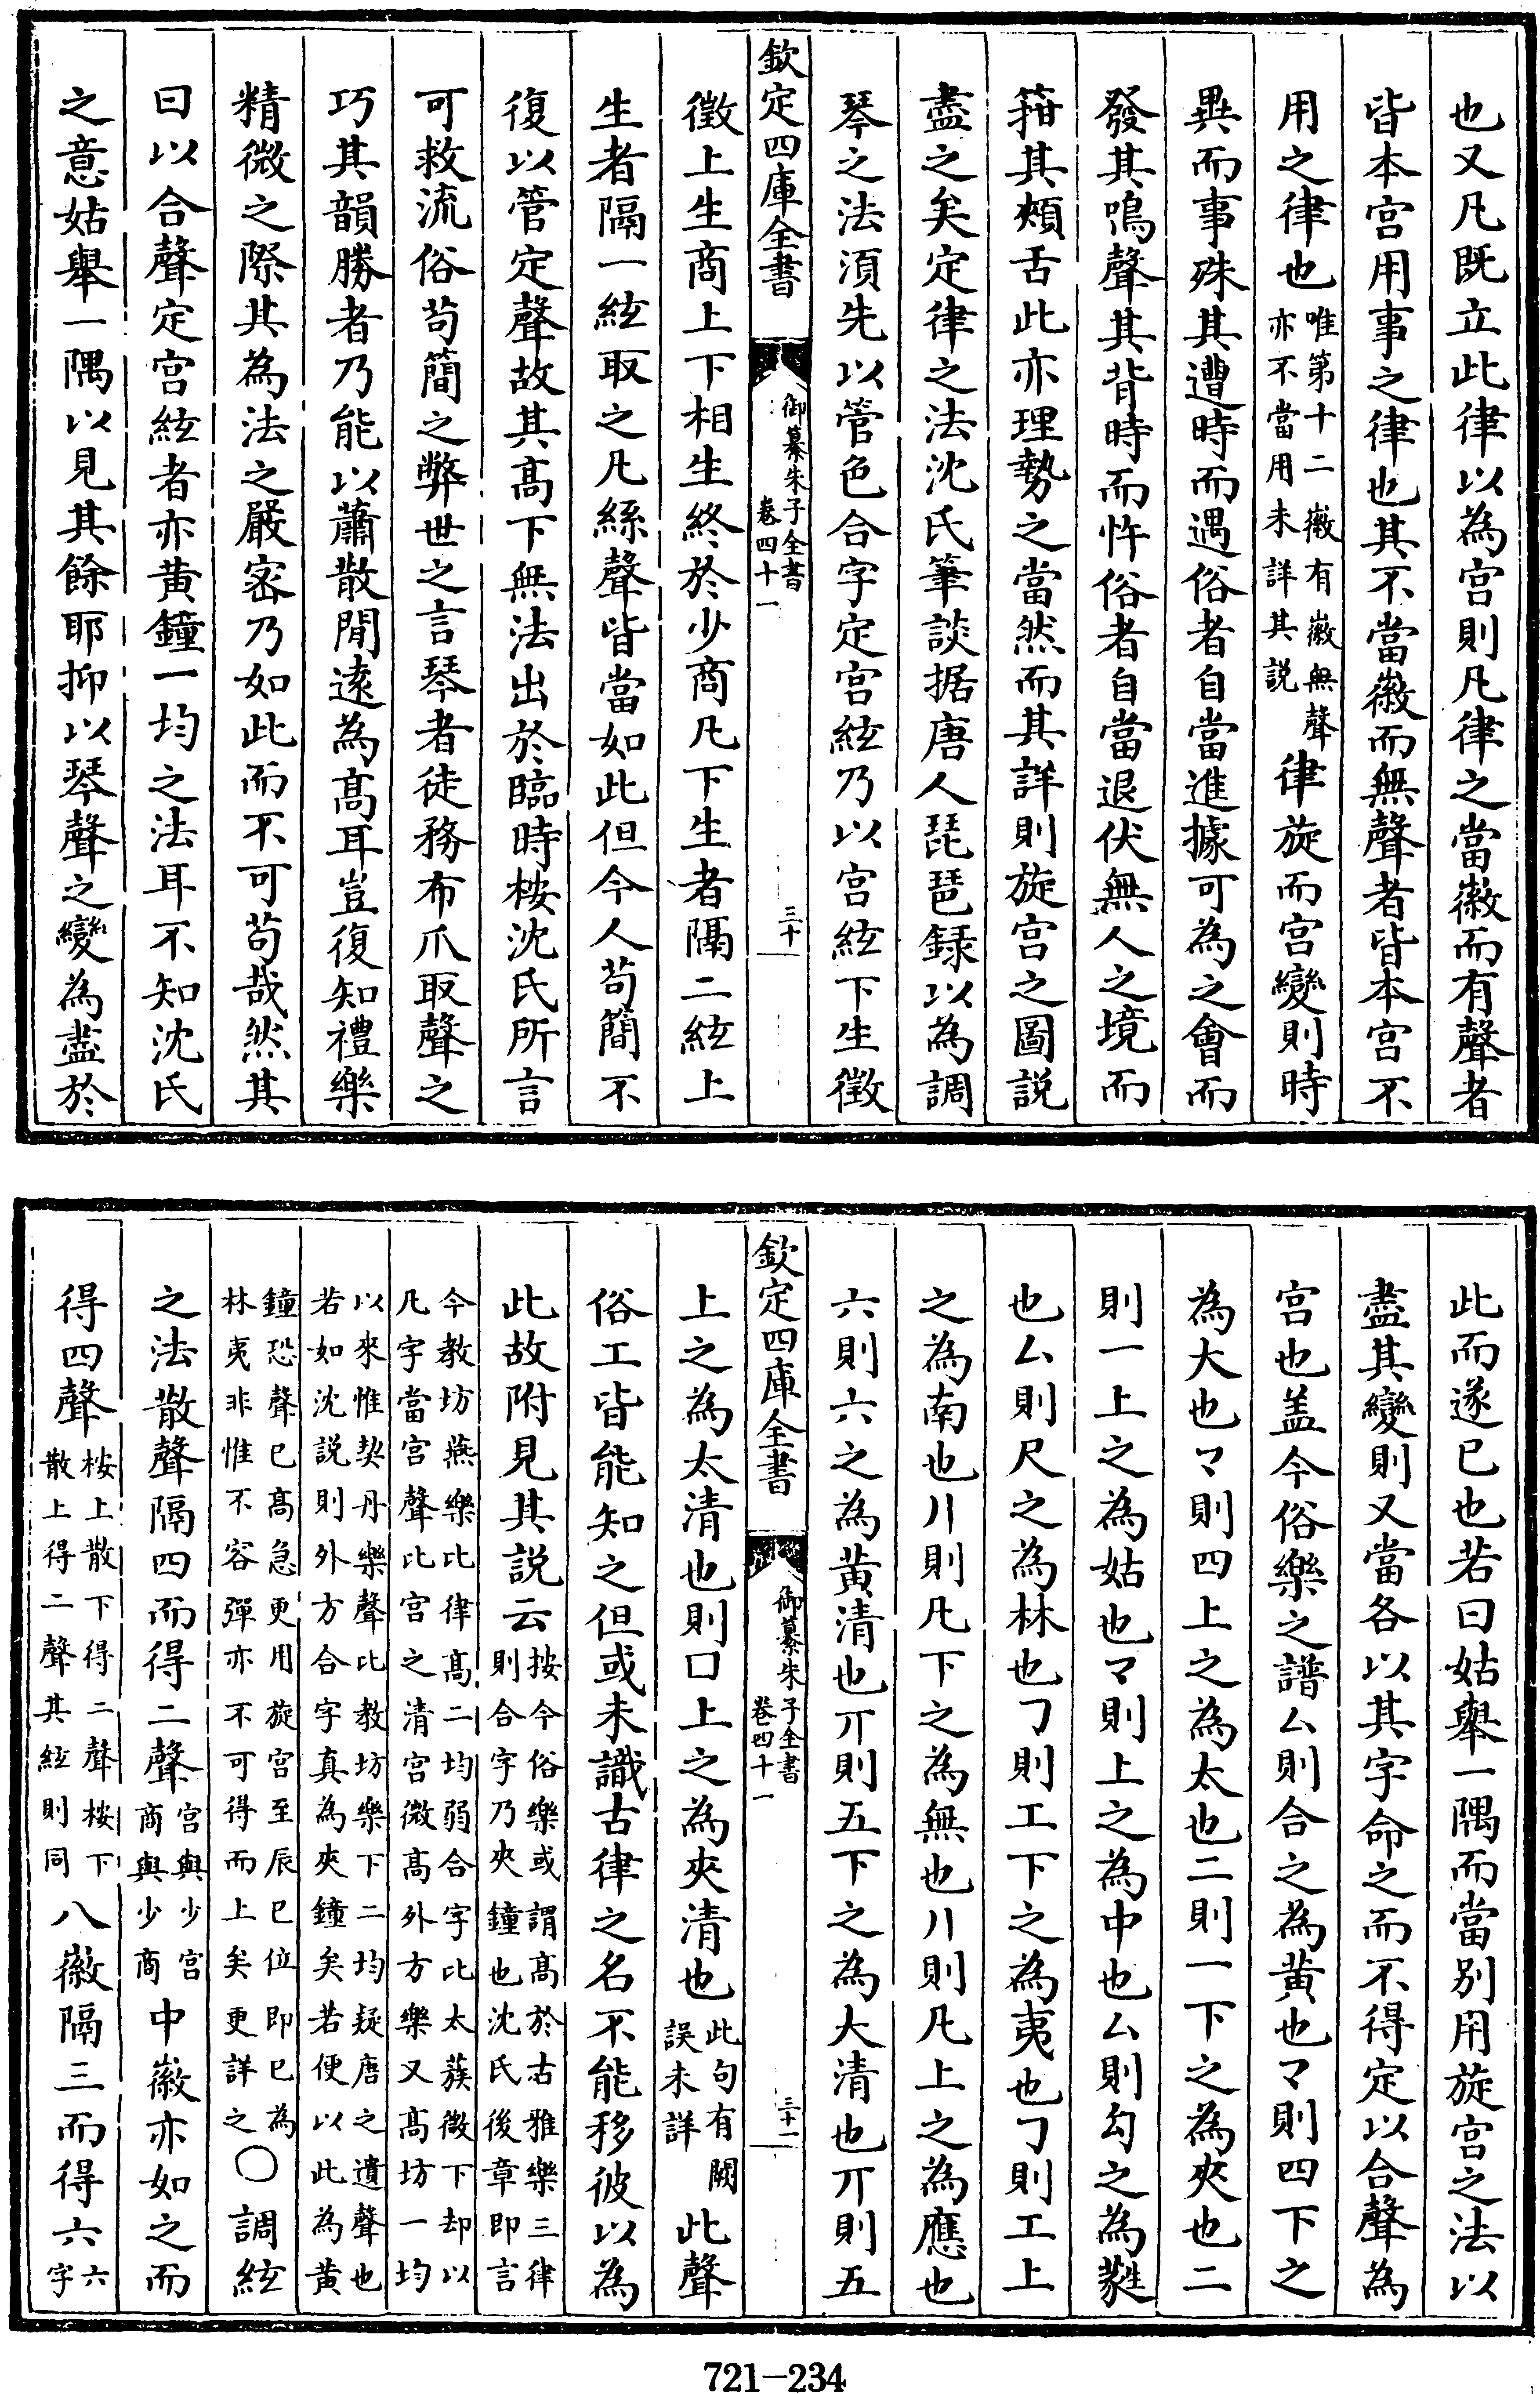 也又凡既立此律以為宫則凡律之當徽而有聲者
皆本宫用事之律也其不當徽而無聲者皆本宫不
用之律也唯第十二徽有徽無聲亦不當用未詳其説律旋而宫變則時
異而事殊其遭時而遇俗者自當進據可為之會而
發其鳴聲其背時而忤俗者自當退伏無人之境而
箝其頰舌此亦理勢之當然而其詳則旋宫之圖説
盡之矣定律之法沈氏筆談据唐人琵琶録以為調
琴之法須先以管色合字定宫絃乃以宫絃下生徵
欽定四庫全書
御纂朱子全書
卷四十一
三十
徵上生商上下相生終於少商凡下生者隔二絃上
生者隔一絃取之凡絲聲皆當如此但今人苟簡不
復以管定聲故其髙下無法出於臨時桉沈氏所言
可救流俗苟簡之弊世之言琴者徒務布爪取聲之
巧其韻勝者乃能以蕭散閒逺為髙耳豈復知禮樂
精微之際其為法之嚴宻乃如此而不可苟哉然其
曰以合聲定宫絃者亦黄鐘一均之法耳不知沈氏
之意姑舉一隅以見其餘耶抑以琴聲之變為盡於
此而遂已也若曰姑舉一隅而當别用旋宫之法以
盡其變則又當各以其字命之而不得定以合聲為
宫也盖今俗樂之譜厶則合之為黄也マ則四下之
為大也マ則四上之為太也二則一下之為夾也二
則一上之為姑也マ則上之為中也厶則勾之為蕤
也厶則尺之為林也㇆則工下之為夷也㇆則工上
之為南也〢則凡下之為無也〢則凡上之為應也
六則六之為黄清也丌則五下之為大清也丌則五
欽定四庫全書
御纂朱子全書
卷四十一
三十一
上之為太清也則口上之為夾清也此句有闕誤未詳此聲
俗工皆能知之但或未識古律之名不能移彼以為
此故附見其説云按今俗樂或謂髙於古雅樂三律則合字乃夾鐘也沈氏後章即言
今教坊燕樂比律髙二均弱合字比太蔟微下却以凡字當宫聲比宫之清宫微髙外方樂又髙坊一均
以來惟契丹樂聲比教坊樂下二均疑唐之遺聲也若如沈説則外方合字真為夾鐘矣若便以此為黄
鐘恐聲已髙急更用旋宫至辰巳位即已為林夷非惟不容彈亦不可得而上矣更詳之○調絃
之法散聲隔四而得二聲宫與少宫商與少商中徽亦如之而
得四聲桉上散下得二聲桉下散上得二聲其絃則同八徽隔三而得六六字
721—234